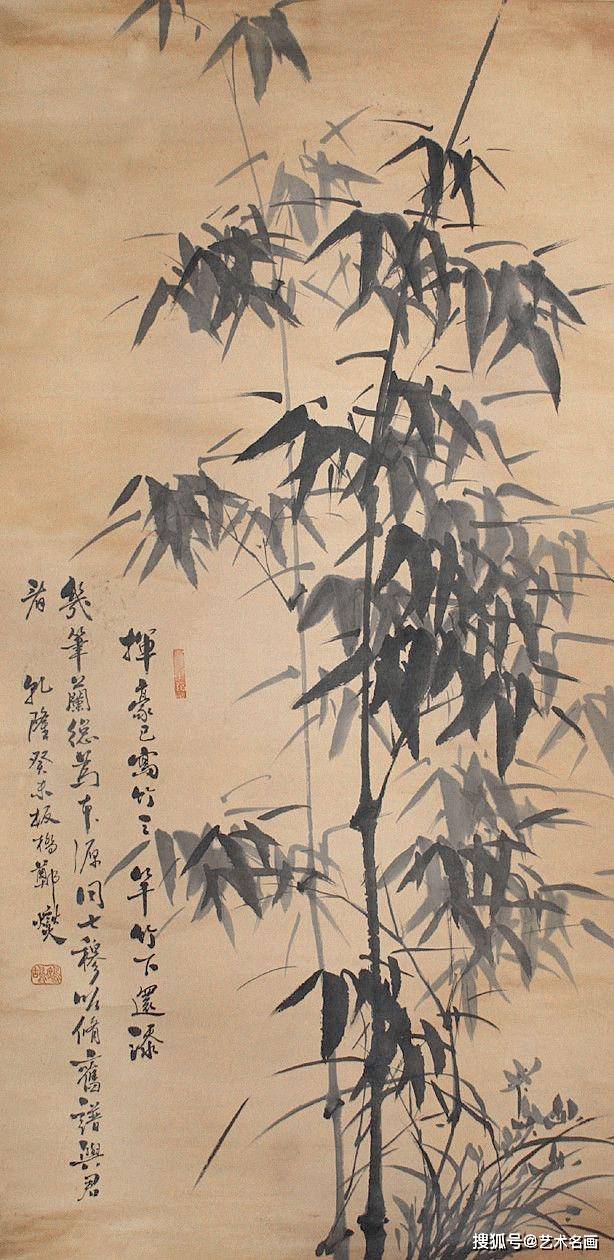 揮豪已寫竹三竿竹下還添
幾筆蘭總為本源同七穆欲脩舊譜與君
看 乾隆癸未板橋鄭燮
搜狐号@艺术名画